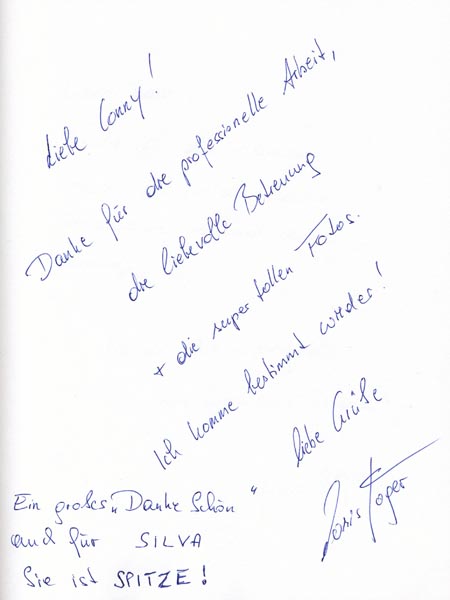 Liebe Conny!
Danke für die professionelle Arbeit,
die liebevolle Betreuung
+ die super tollen Fotos.
Ich komme bestimmt wieder!
liebe Grüße
Doris
Ein großes „Danke Schön“
auch für SILVA
Sie ist SPITZE!